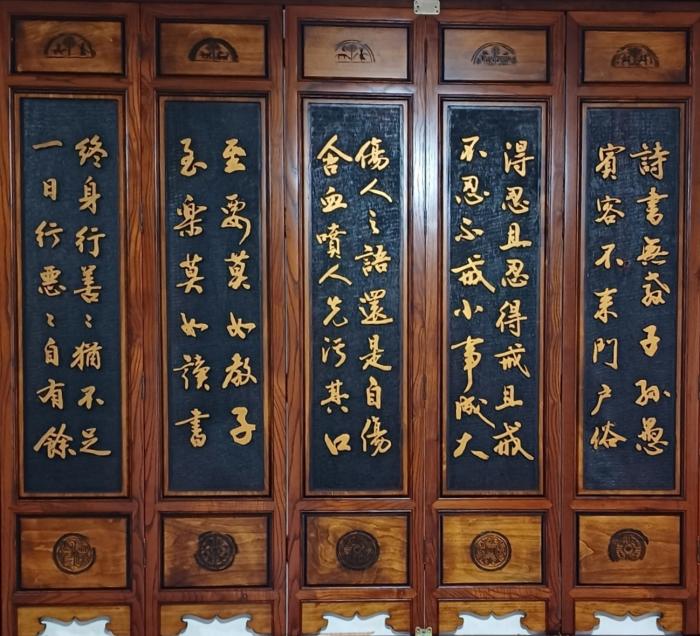 詩書無教子孫愚
賓客不來門户俗
得忍且忍得戒且戒
不忍不戒小事成大
傷人之語還是自傷
含血噴人先污其口
至要莫如教子
至樂莫如讀書
終身行善〻猶不足
一日行惡〻自有餘